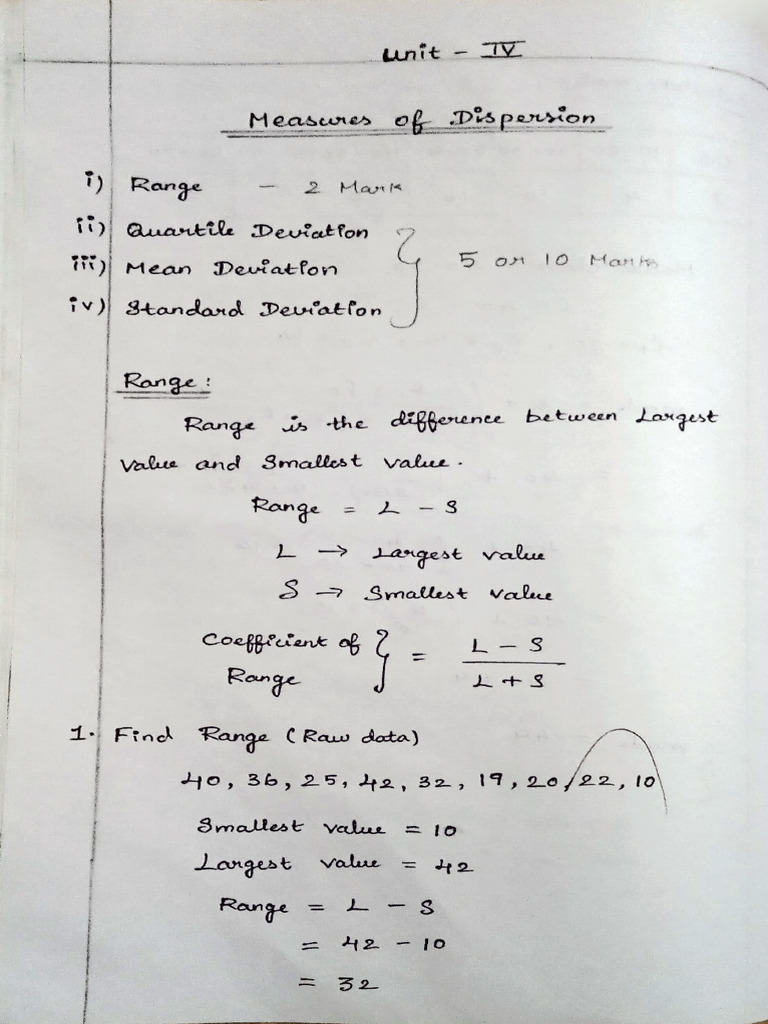 Unit - IV
Measures of Dispersion
i) Range - 2 Mark
ii) Quartile Deviation
iii) Mean Deviation } 5 or 10 Marks
iv) Standard Deviation
Range :
Range is the difference between Largest
value and Smallest value.
Range = L - S
L → Largest value
S → Smallest value
Coefficient of Range } = L - S / L + S
1. Find Range (Raw data)
40, 36, 25, 42, 32, 19, 20, 22, 10
Smallest value = 10
Largest value = 42
Range = L - S
= 42 - 10
= 32